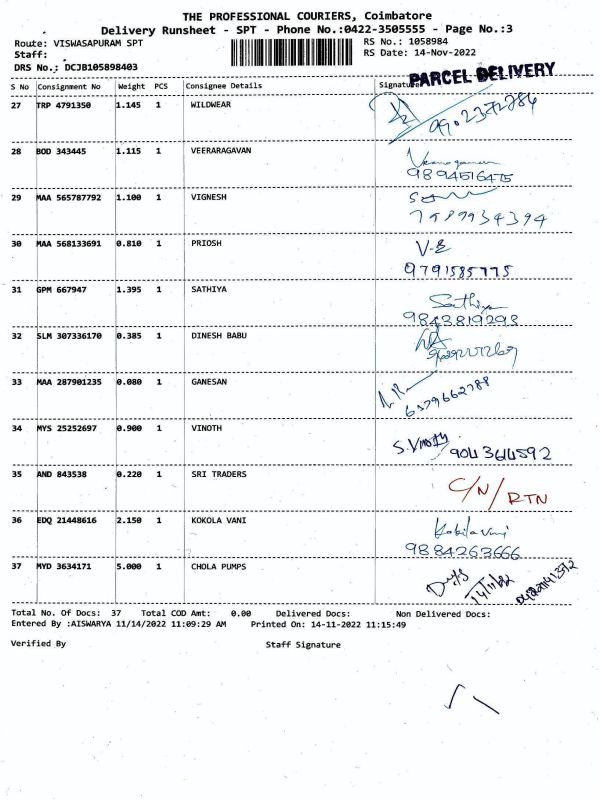 THE PROFESSIONAL COURIERS, Coimbatore
Delivery Runsheet - SPT - Phone No.:0422-3505555 - Page No.:3
Route: VISWASAPURAM SPT RS No.: 1058984
Staff: RS Date: 14-Nov-2022
DRS No.: DCJB105898403 PARCEL DELIVERY
S No Consignment No Weight PCS Consignee Details Signature
27 TRP 4791350 1.145 1 WILDWEAR
28 BOD 343445 1.115 1 VEERARAGAVAN
9894516475
29 MAA 565787792 1.100 1 VIGNESH
30 MAA 568133691 0.810 1 PRIOSH V-E
9791585775
31 GPM 667947 1.395 1 SATHIYA Sathiya
9843819293
32 SLM 307336170 0.385 1 DINESH BABU
33 MAA 287901235 0.080 1 GANESAN
6379662788
34 MYS 25252697 0.900 1 VINOTH S.Vinoth
9043614592
35 AND 843538 0.220 1 SRI TRADERS C/N/RTN
36 EDQ 21448616 2.150 1 KOKOLA VANI Kokilavani
9884263666
37 MYD 3634171 5.000 1 CHOLA PUMPS
14/11/22
Total No. Of Docs: 37 Total COD Amt: 0.00 Delivered Docs: Non Delivered Docs:
Entered By :AISWARYA 11/14/2022 11:09:29 AM Printed On: 14-11-2022 11:15:49
Verified By Staff Signature